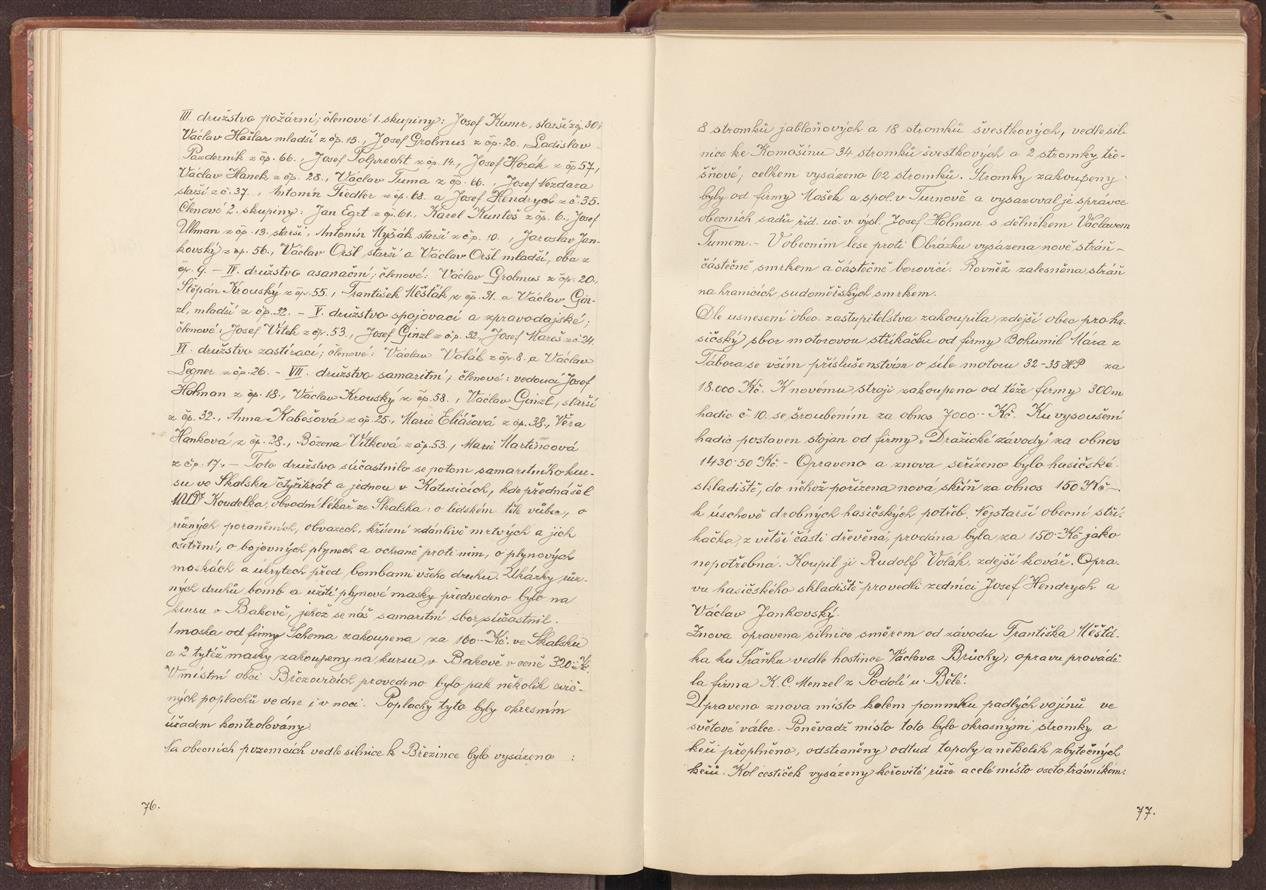 III. družstvo požární; členové 1. skupiny: Josef Kunr, starší z čp. 30.,
Václav Hašlar mladší z čp. 15., Josef Grolmus z čp. 20., Ladislav
Pazderník z čp. 66., Josef Polprecht z čp. 14., Josef Horák z čp. 57.,
Václav Hanek z čp. 28., Václav Tuma z čp. 66., Josef Nezdara
starší z č. 37., Antonín Fiedler z čp. 63. a Josef Hendrych z č. 35.
Členové 2. skupiny: Jan Egrt z čp. 61., Karel Kuntoš z čp. 6., Josef
Ullman z čp. 13. starší, Antonín Myšák starší z čp. 10., Jaroslav Jan-
kovský z čp. 56., Václav Oršl starší a Václav Oršl mladší, oba z
čp. 9. – IV. družstvo asanační; členové: Václav Grolmus z čp. 20.,
Štěpán Krouský z čp. 55., František Měšťák z čp. 31. a Václav Gin-
zl, mladší z čp. 32. – V. družstvo spojovací a zpravodajské;
členové: Josef Vítek z čp. 53., Josef Ginzl z čp. 32., Josef Hareš z č. 24.
VI. družstvo zastírací; členové: Václav Volák z čp. 8. a Václav
Legner z čp. 26. – VII. družstvo samaritní; členové: vedoucí Josef
Holman z čp. 18., Václav Krouský z čp. 58., Václav Ginzl, starší
z čp. 32., Anna Kabešová z čp. 25., Marie Eliášová z čp. 38., Věra
Hanková z čp. 28., Božena Vítková z čp. 53., Marie Martincová
z čp. 17. – Toto družstvo súčastnilo se potom samaritního kur-
su ve Skalsku čtyřikrát a jednou v Katusicích, kde přednášel
MUDr Koudelka, obvodní lékař ze Skalska: o lidském těle vůbec, o
různých poraněních, obvazech, kříšení zdánlivě mrtvých a jich
ošetření, o bojovných plynech a ochraně proti nim, o plynových
maskách a úkrytech před bombami všeho druhu. Ukázky růz-
ných druhů bomb a užití plynové masky předvedeno bylo na
kursu v Bakově, jehož se náš samaritní sbor súčastnil.
1 maska od firmy Schema zakoupena za 160.– Kč. ve Skalsku
a 2 tytéž masky zakoupeny na kursu v Bakově v ceně 320.– Kč.
V místní obci Březovicích provedeno bylo pak několik cvič-
ných poplachů ve dne i v noci. Poplachy tyto byly okresním
úřadem kontrolovány.
Na obecních pozemcích vedle silnice k Březince bylo vysázeno :
76.
8 stromků jabloňových a 18 stromků švestkových, vedle sil-
nice ke Komošínu 34 stromků švestkových a 2 stromky tře-
šňové, celkem vysázeno 62 stromků. Stromky zakoupeny
byly od firmy Mašek a spol. v Turnově a vysazoval je správce
obecních sadů říd. uč. v výsl. Josef Holman s dělníkem Václavem
Tumem. – V obecním lese proti Obrázku vysázena nově stráň –
částečně smrkem a částečně borovicí. Rovněž zalesněna stráň
na hranicích sudoměřských smrkem.
Dle usnesení obec. zastupitelstva zakoupila zdejší obec pro ha-
sičský sbor motorovou stříkačku od firmy Bohumil Mára z
Tábora se vším příslušenstvím o síle motoru 32-35 HP za
18.000 Kč. K novému stroji zakoupeno od téže firmy 300 m
hadic č 10. se šroubením za obnos 7000.– Kč. Ku vysoušení
hadic postaven stojan od firmy „Dražické závody“ za obnos
1430·50 Kč. – Opraveno a znova seřízeno bylo hasičské
skladiště, do něhož pořízena nová skříň za obnos 150 Kč –
k úschově drobných hasičských potřeb. Nejstarší obecní stří-
kačka, z větší části dřevěná, prodána byla za 150 Kč jako
nepotřebná. Koupil ji Rudolf Volák, zdejší kovář. Opra-
vu hasičského skladiště provedli zedníci Josef Hendrych a
Václav Jankovský.
Znova opravena silnice směrem od závodu Františka Měšťá-
ka ku Sraňku vedle hostince Václava Brůchy; opravu provádě-
la firma K. C. Menzel z Podolí u Bělé.
Upraveno znova místo kolem pomníku padlých vojínů ve
světové válce. Poněvadž místo toto bylo okrasnými stromky a
keři přeplněno, odstraněny odtud topoly a několik zbytečných
keřů. Kol cestiček vysázeny keřovité růže a celé místo oseto trávníkem.
77.